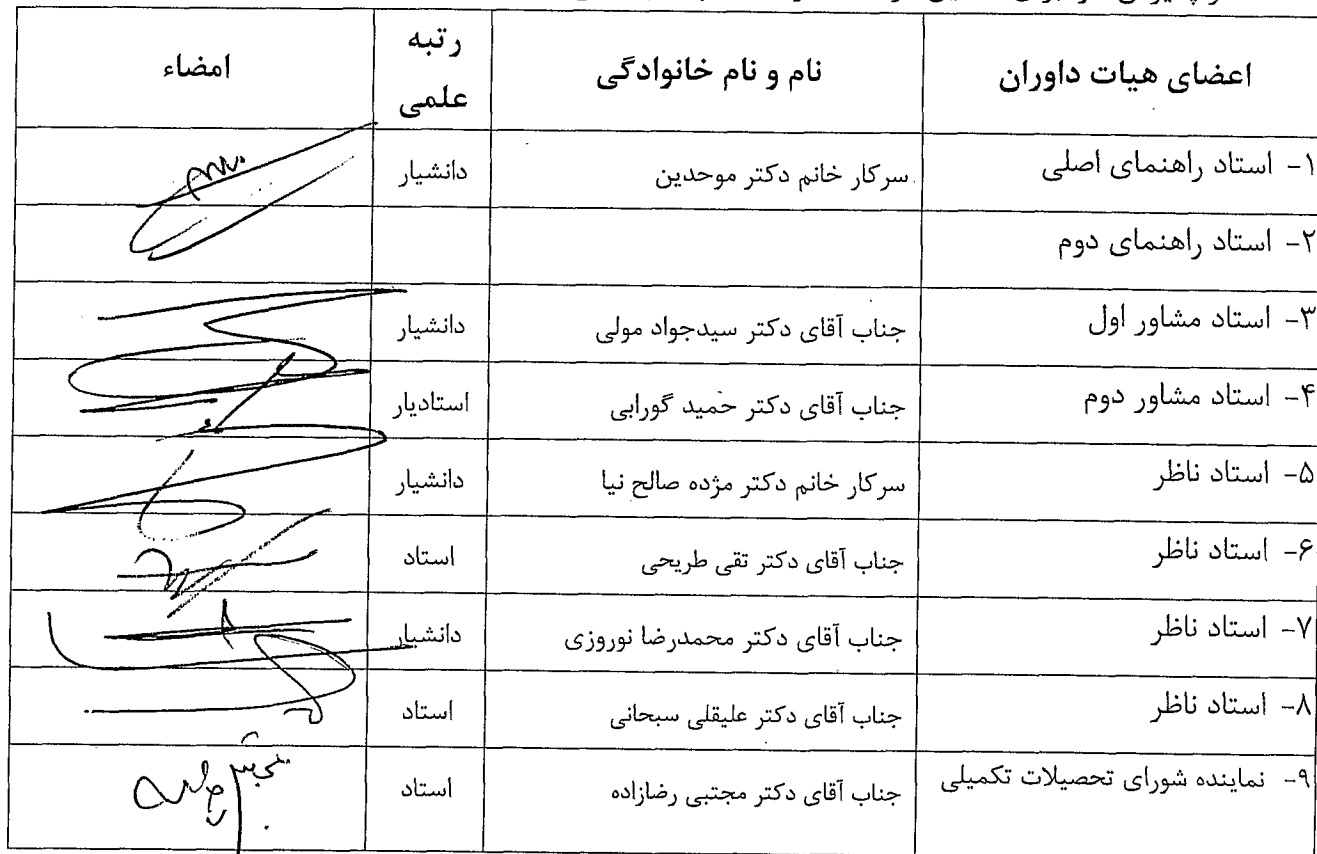 اعضای هیات داوران نام و نام خانوادگی رتبه علمی امضاء
۱- استاد راهنمای اصلی سرکار خانم دکتر موحدین دانشیار
۲- استاد راهنمای دوم
۳- استاد مشاور اول جناب آقای دکتر سیدجواد مولی دانشیار
۴- استاد مشاور دوم جناب آقای دکتر حمید گورابی استادیار
۵- استاد ناظر سرکار خانم دکتر مژده صالح نیا دانشیار
۶- استاد ناظر جناب آقای دکتر تقی طریحی استاد
۷- استاد ناظر جناب آقای دکتر محمدرضا نوروزی دانشیار
۸- استاد ناظر جناب آقای دکتر علیقلی سبحانی استاد
۹- نماینده شورای تحصیلات تکمیلی جناب آقای دکتر مجتبی رضازاده استاد